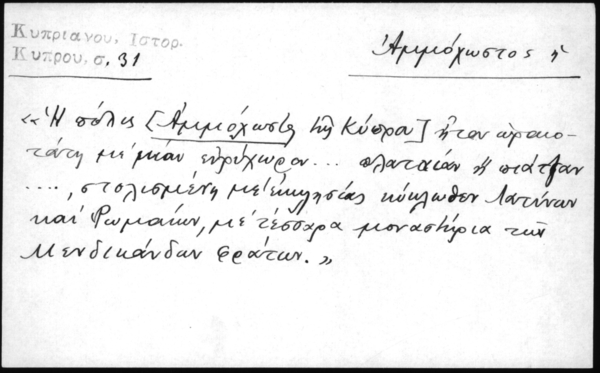 Κυπριανου, Ιστορ.
Κυπρου, σ. 31
Ἀμμόχωστος ἡ
«Ἡ πόλις [Ἀμμόχωστος τῆς Κύπρου] ἦτον ὡραιο-
τάτη μὲ μίαν εὐρύχωρον... πλατεῖαν ἢ πιάτζαν
...., στολισμένη μὲ ἐκκλησίας κύκλωθεν Λατίνων
καὶ Ρωμαίων, μὲ τέσσαρα μοναστήρια τῶν
Μενδικάνδων Φράτων.»